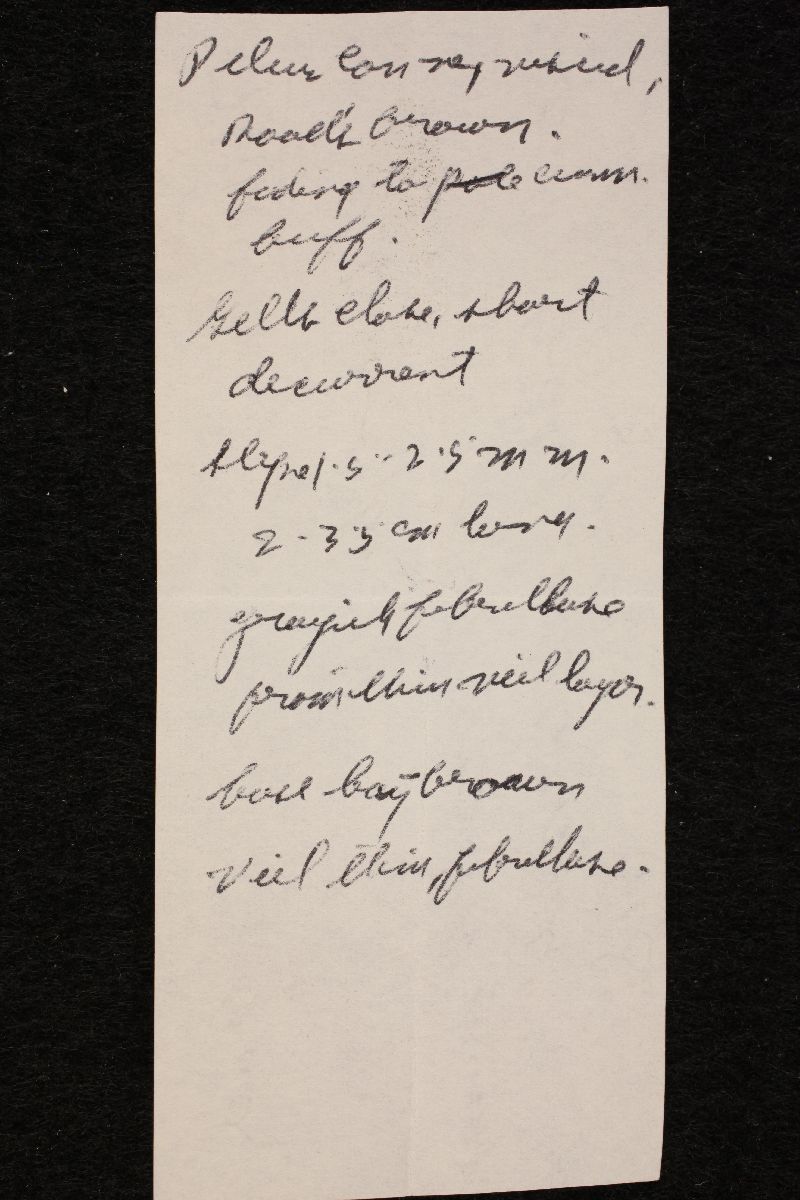 Pileus convex, viscid,
brown.
fading to pale cinn.
buff.
Gills close, short
decurrent
stipe 1.5-2.5 mm.
2-3.5 cm long.
grayish fibrillose
from thin veil layer.
base bay brown
Veil thin, fibrillose.